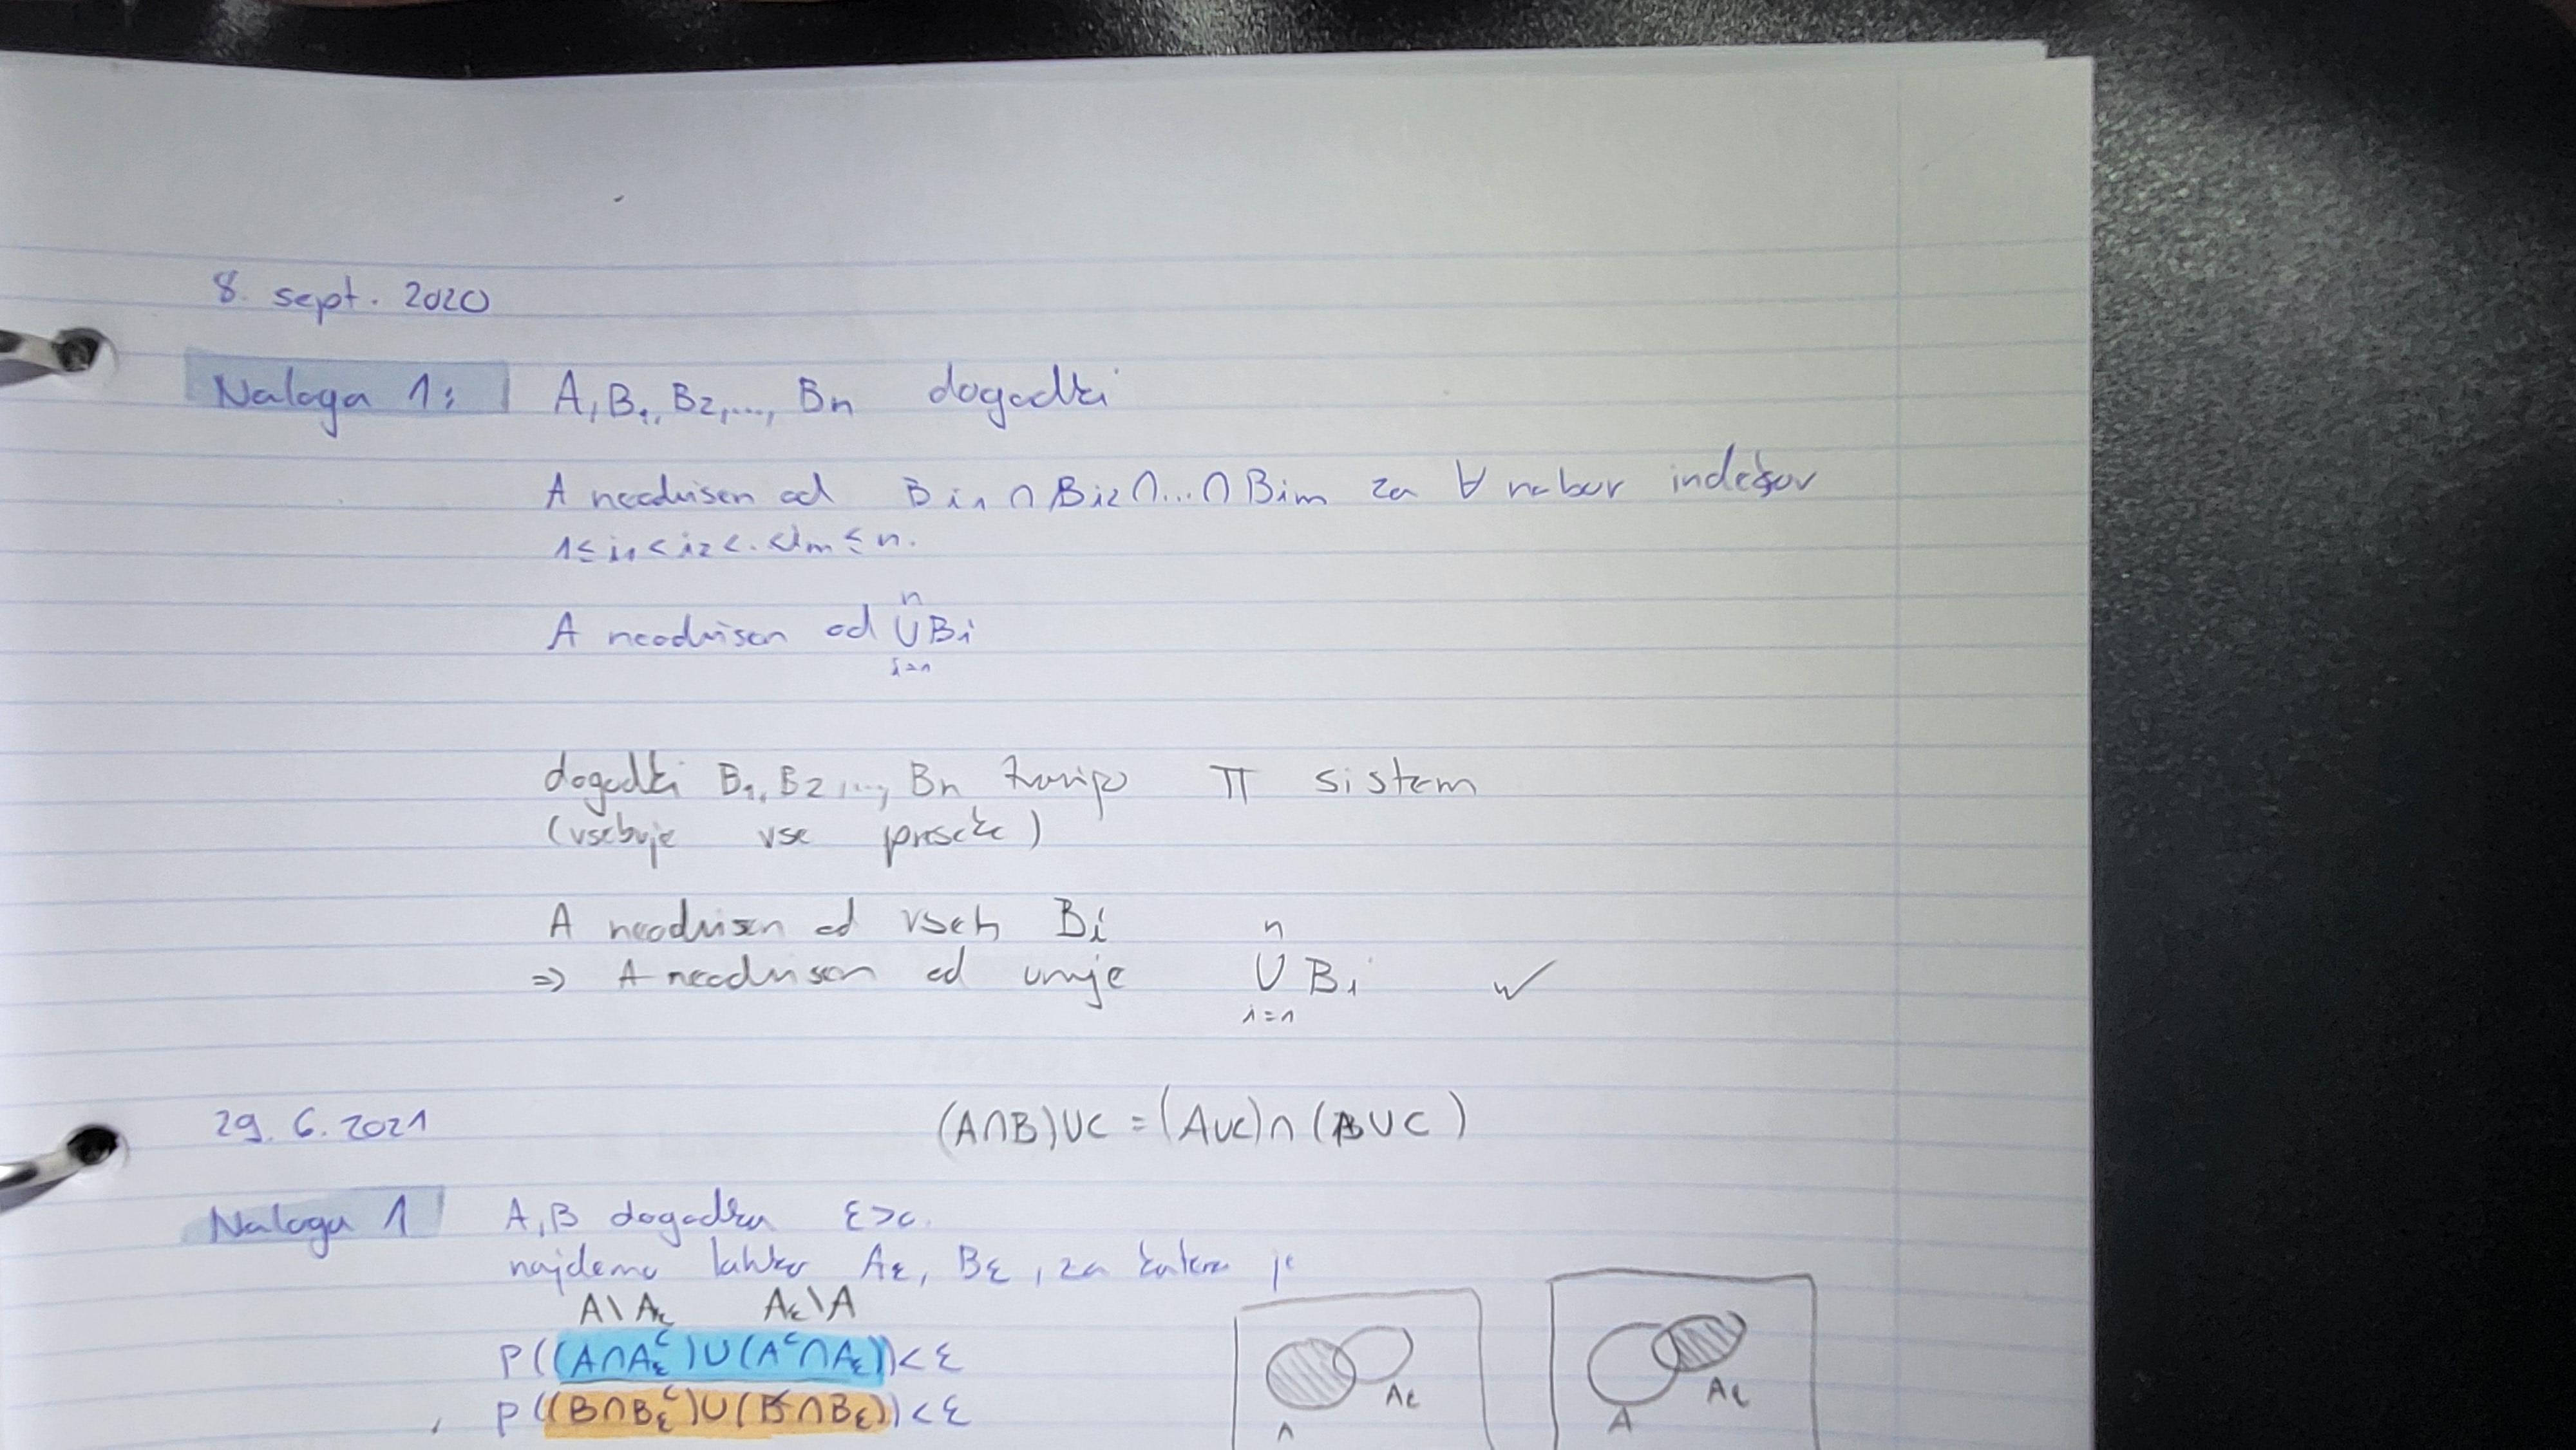 8. sept. 2020
Naloga 1: A, B1, B2, ..., Bn dogodki
A neodvisen od Bi1 ∩ Bi2 ∩ ... ∩ Bim za ∀ nabor indeksov
1 ≤ i1 < i2 < .. < im ≤ n.
A neodvisen od ⋃ⁿᵢ₌₁ Bi
dogodki B1, B2, ..., Bn tvorijo π sistem
(vsebuje vse preseke)
A neodvisen od vseh Bi
=> A neodvisen od unije ⋃ⁿᵢ₌₁ Bi ✓
(A∩B)∪C = (A∪C)∩(B∪C)
29. 6. 2021
Naloga 1 A, B dogodka ε>0.
najdemo lahko Aε, Bε, za katera je
A\Aε Aε\A
P((A∩Aεᶜ)∪(Aᶜ∩Aε)) < ε
P((B∩Bεᶜ)∪(Bᶜ∩Bε)) < ε
A Aε
A Aε